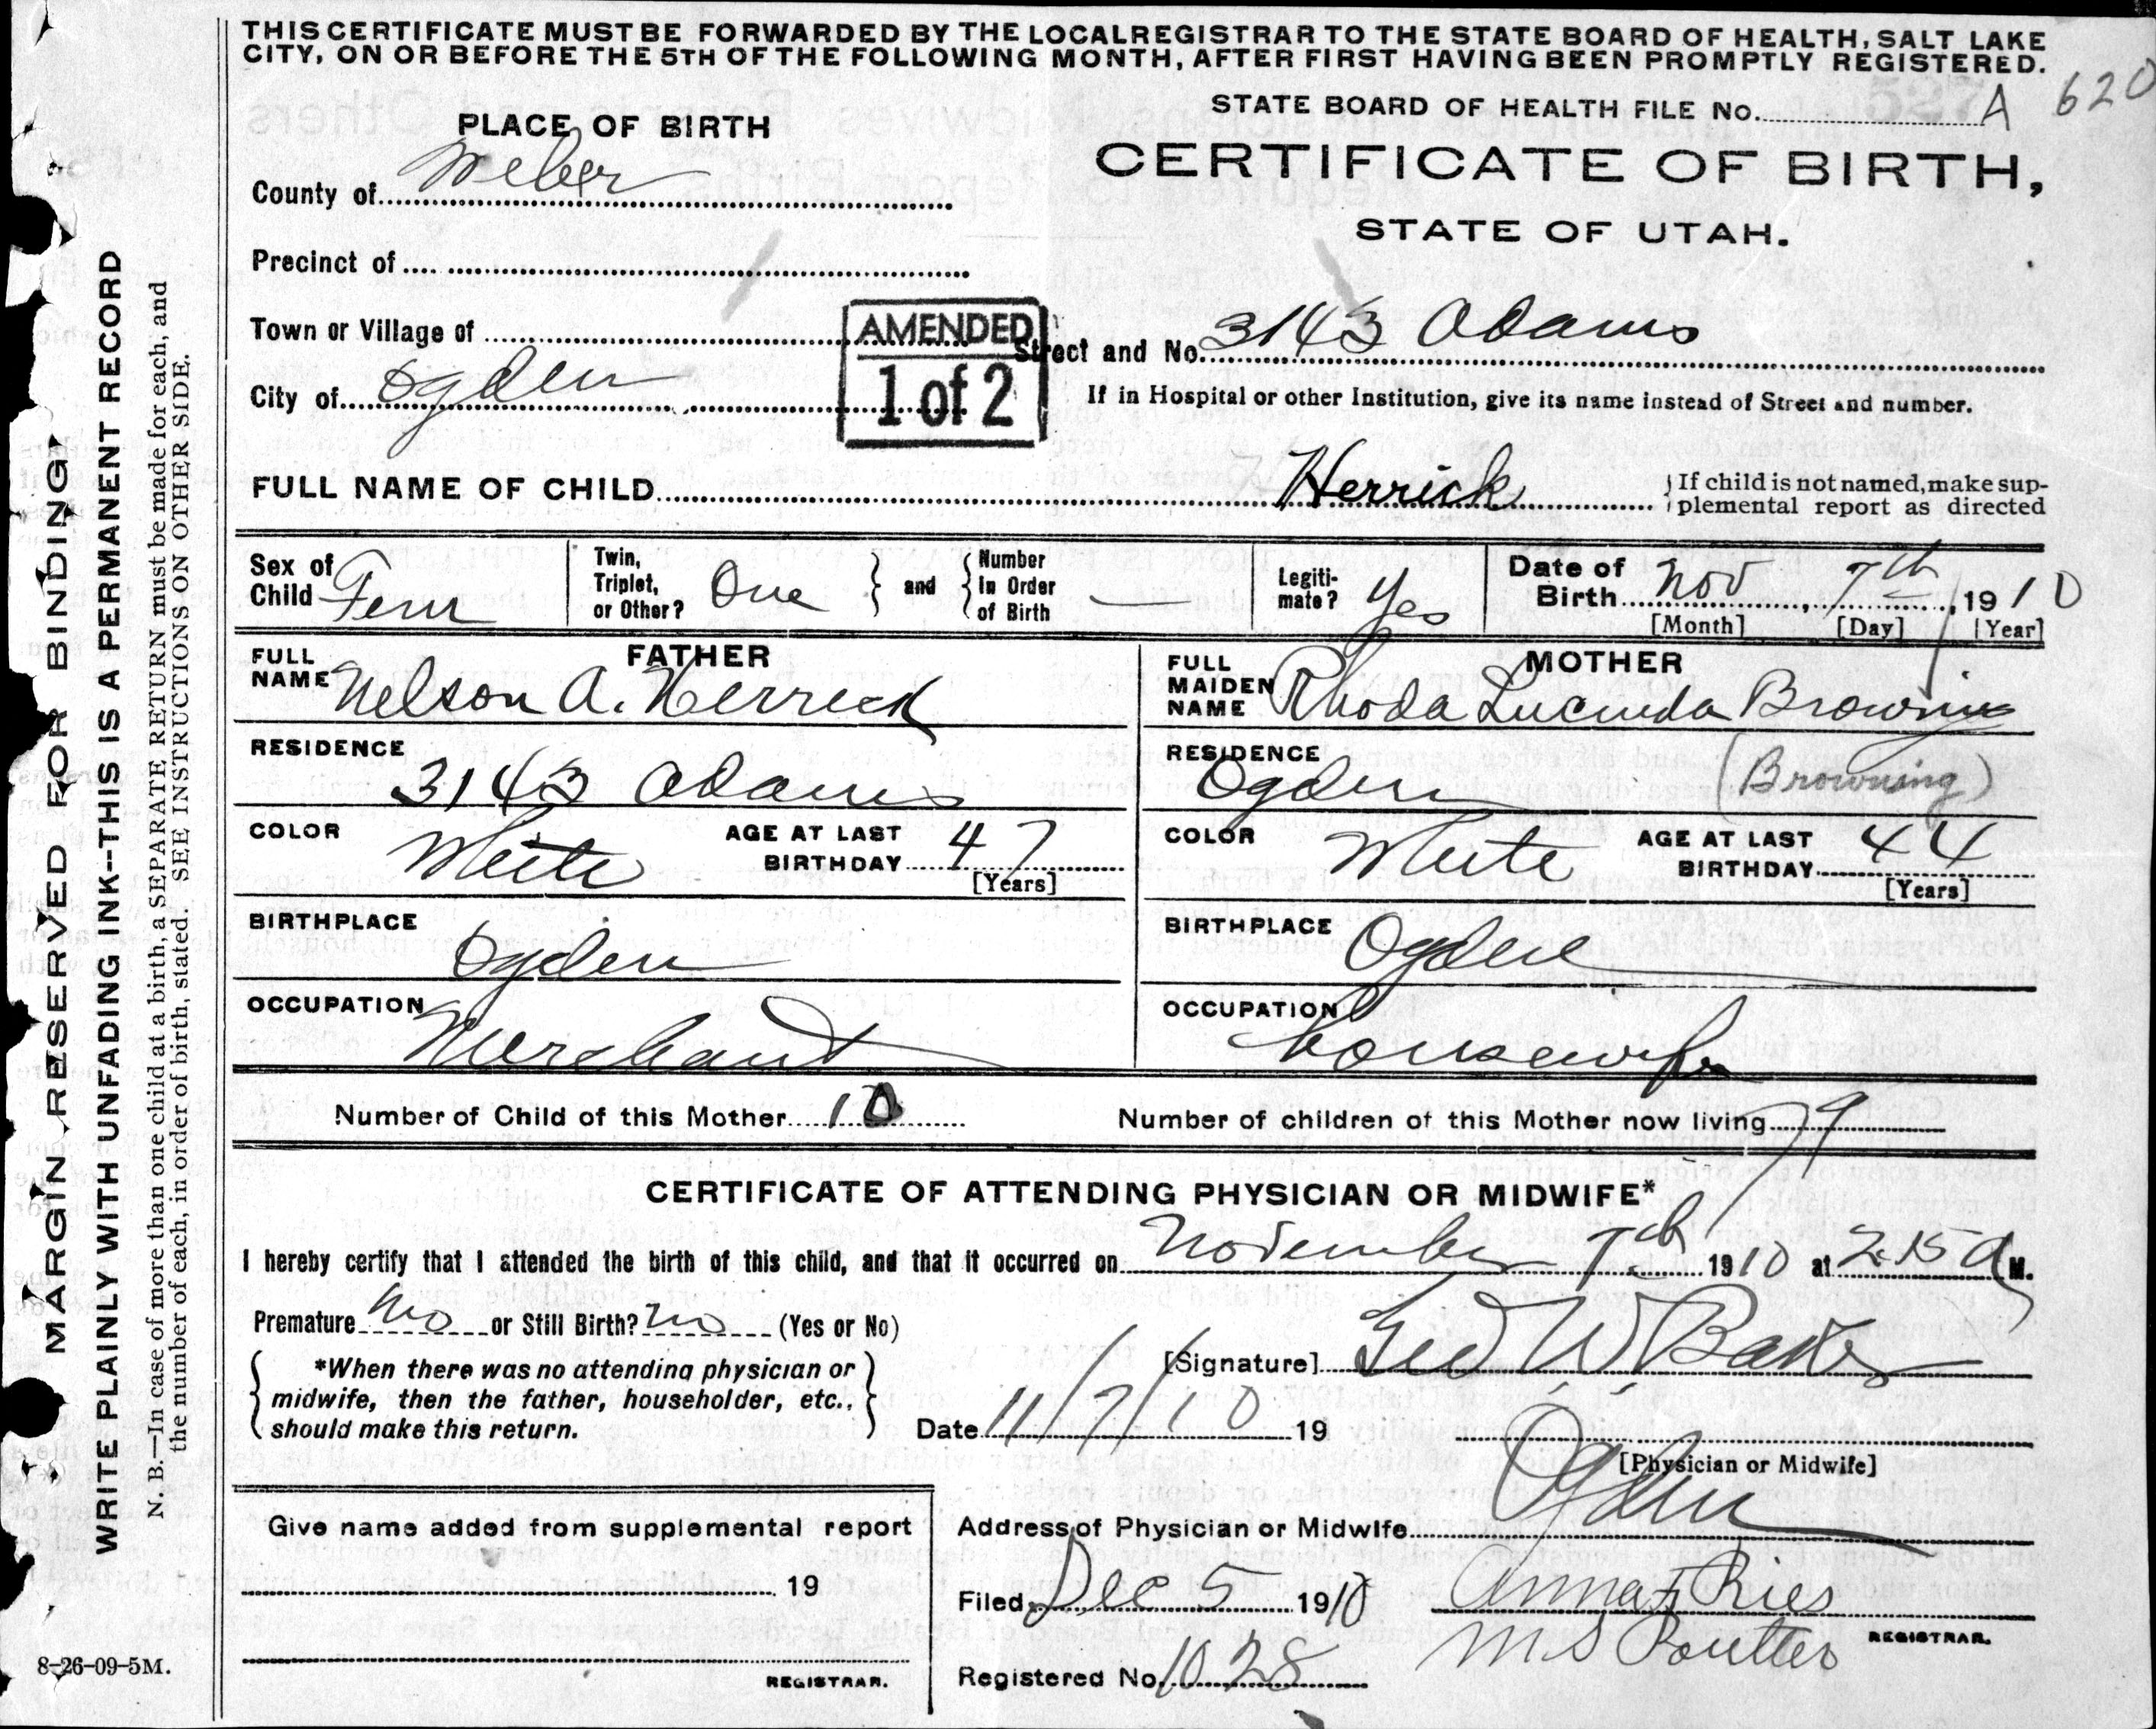 THIS CERTIFICATE MUST BE FORWARDED BY THE LOCAL REGISTRAR TO THE STATE BOARD OF HEALTH, SALT LAKE
CITY, ON OR BEFORE THE 5TH OF THE FOLLOWING MONTH, AFTER FIRST HAVING BEEN PROMPTLY REGISTERED.
STATE BOARD OF HEALTH FILE No. A 620
PLACE OF BIRTH
CERTIFICATE OF BIRTH,
County of Weber
STATE OF UTAH.
Precinct of
Town or Village of
AMENDED
1 of 2
Street and No. 3143 Adams
City of Ogden
If in Hospital or other Institution, give its name instead of Street and number.
FULL NAME OF CHILD Herrick
If child is not named, make sup-
plemental report as directed
Sex of Child Fem
Twin, Triplet, or Other? One
and
Number In Order of Birth —
Legiti-mate? Yes
Date of Birth Nov 7th, 1910
[Month] [Day] [Year]
FATHER
FULL NAME Nelson A. Herrick
RESIDENCE 3143 Adams
COLOR White
AGE AT LAST BIRTHDAY 47
[Years]
BIRTHPLACE Ogden
OCCUPATION Merchant
MOTHER
FULL MAIDEN NAME Rhoda Lucinda Browning
RESIDENCE Ogden (Browning)
COLOR White
AGE AT LAST BIRTHDAY 44
[Years]
BIRTHPLACE Ogden
OCCUPATION housewife
Number of Child of this Mother 10
Number of children of this Mother now living 9
CERTIFICATE OF ATTENDING PHYSICIAN OR MIDWIFE*
I hereby certify that I attended the birth of this child, and that it occurred on November 7th 1910 at 2:15 A M.
Premature No or Still Birth? No (Yes or No)
*When there was no attending physician or
midwife, then the father, householder, etc.,
should make this return.
[Signature] Geo W Baker
Date 11/7/10 19
[Physician or Midwife]
Address of Physician or Midwife Ogden
Give name added from supplemental report
19
REGISTRAR.
Filed Dec 5 1910
Anna F Ries
REGISTRAR.
M S Poulter
Registered No. 1028
8-26-09-5M.
MARGIN RESERVED FOR BINDING
WRITE PLAINLY WITH UNFADING INK--THIS IS A PERMANENT RECORD
N. B.—In case of more than one child at a birth, a SEPARATE RETURN must be made for each, and
the number of each, in order of birth, stated. SEE INSTRUCTIONS ON OTHER SIDE.